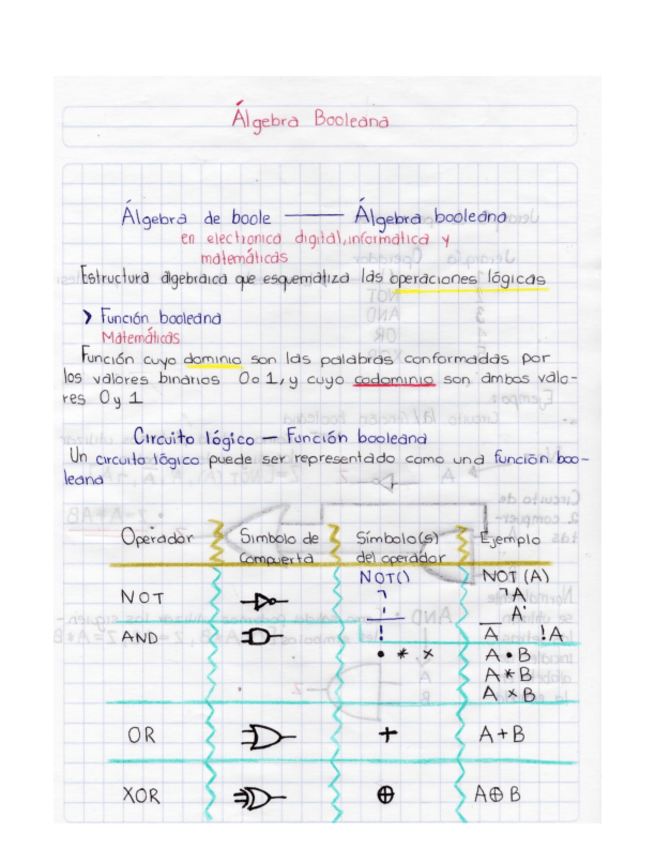 Álgebra Booleana
Álgebra de boole — Álgebra booleana
en electronica digital, informática y
matemáticas
Estructura algebraica que esquematiza las operaciones lógicas
> Función booleana
Matemáticas
Función cuyo dominio son las palabras conformadas por
los valores binarios 0 o 1, y cuyo codominio son ambos valo-
res 0 y 1
Circuito lógico — Función booleana
Un circuito lógico puede ser representado como una función boo-
leana
Operador Simbolo de Símbolo(s) Ejemplo
Compuerta del operador
NOT() NOT (A)
NOT ¬ ¬A
' A'
AND ! A !A
• * × A • B
A * B
A × B
OR + A + B
XOR ⊕ A ⊕ B